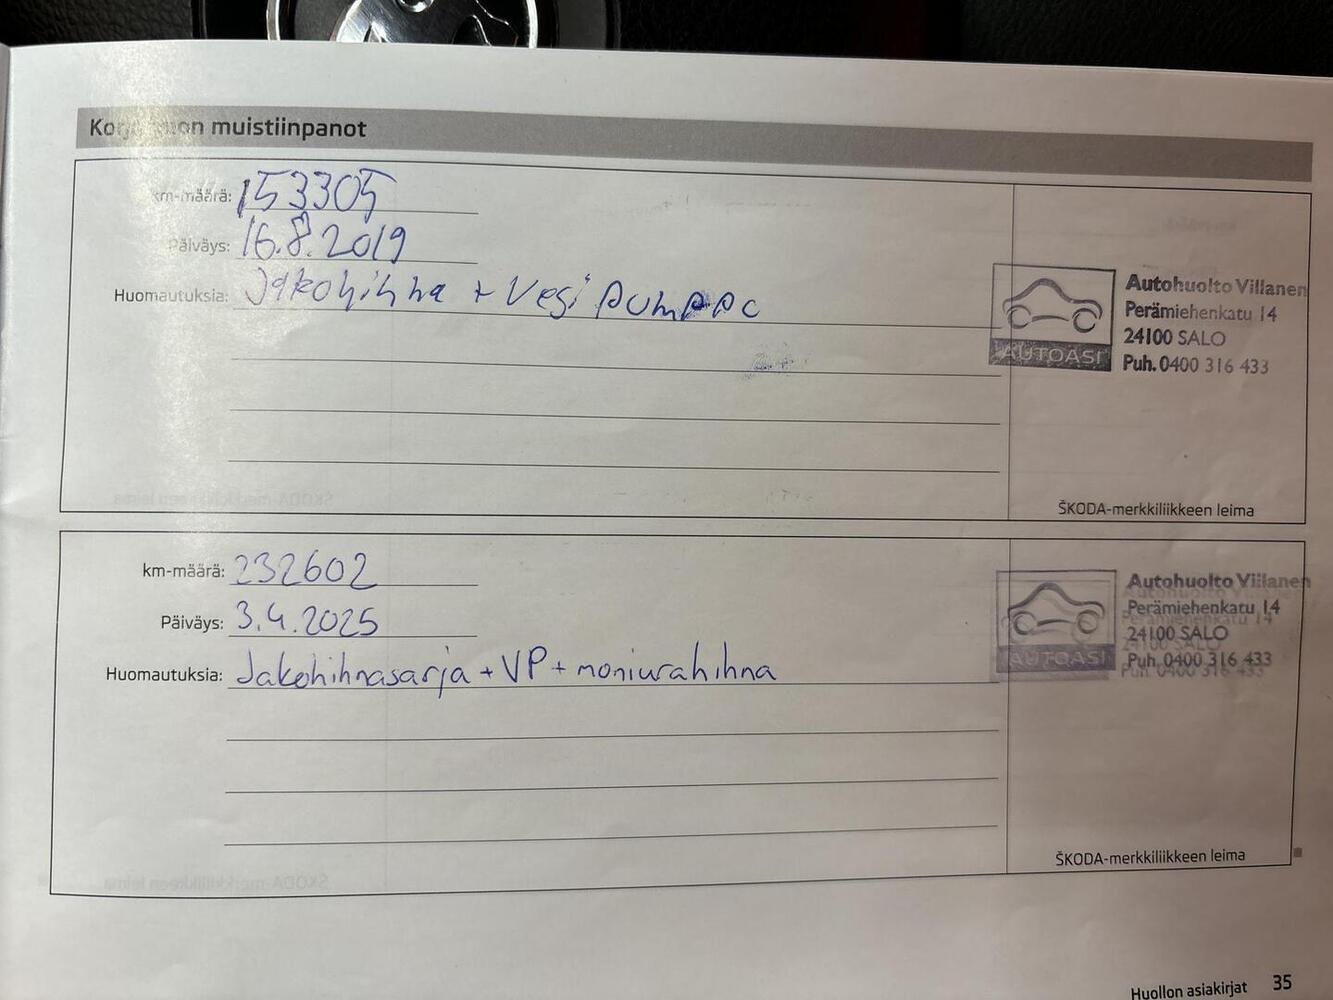 Korjaamon muistiinpanot
km-määrä: 153305
Päiväys: 16.8.2019
Huomautuksia: Jakohihna + Vesi pumppo
AUTOASI
Autohuolto Villanen
Perämiehenkatu 14
24100 SALO
Puh. 0400 316 433
ŠKODA-merkkiliikkeen leima
km-määrä: 232602
Päiväys: 3.4.2025
Huomautuksia: Jakohihnasarja + VP + moniurahihna
AUTOASI
Autohuolto Villanen
Perämiehenkatu 14
24100 SALO
Puh. 0400 316 433
ŠKODA-merkkiliikkeen leima
Huollon asiakirjat 35